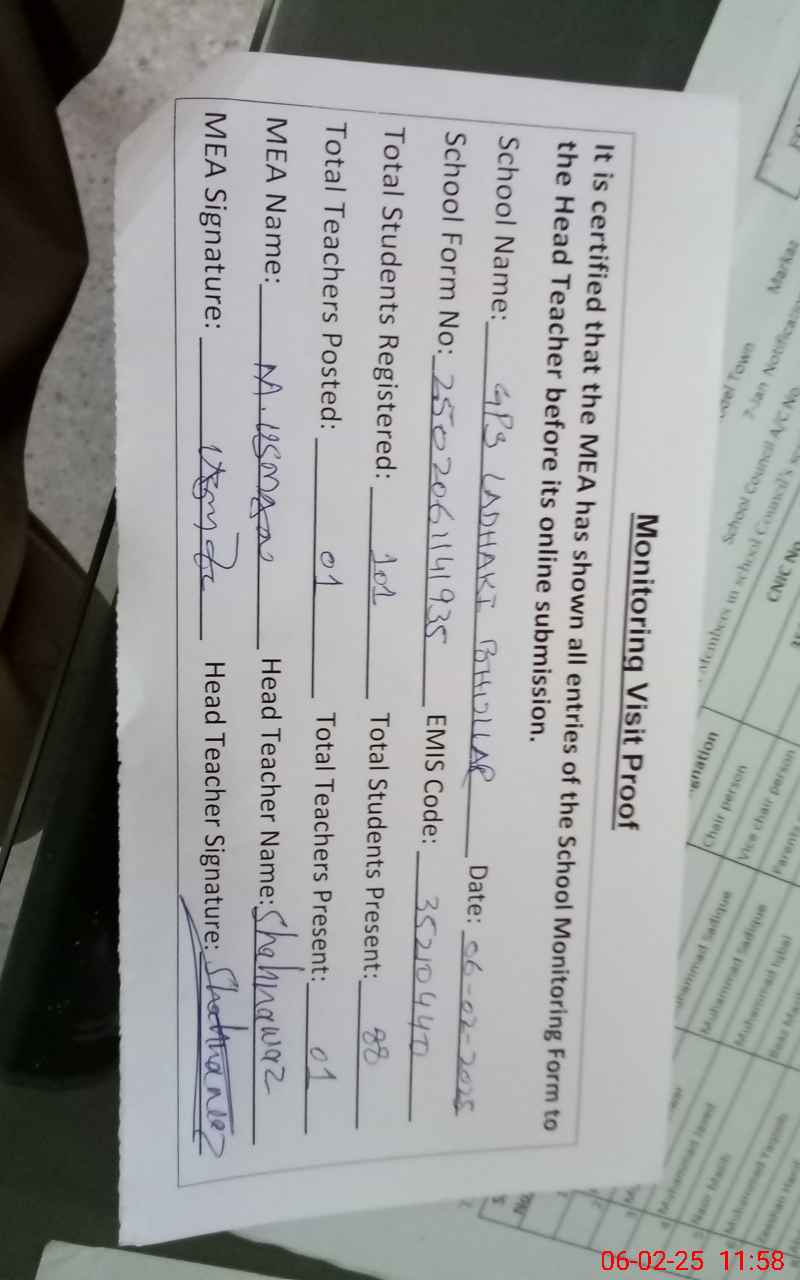 Monitoring Visit Proof
It is certified that the MEA has shown all entries of the School Monitoring Form to
the Head Teacher before its online submission.
School Name: GPS LADHAKI Date: 06-02-2025
School Form No: 2502061141935 EMIS Code: 35210440
Total Students Registered: 101 Total Students Present: 88
Total Teachers Posted: 01 Total Teachers Present: 01
MEA Name: M. USMAN Head Teacher Name: Shahnawaz
MEA Signature: Head Teacher Signature:
School Council A/C No.
CNIC No.
Chair person
Vice chair person
Muhammad Sadique
Muhammad Iqbal
06-02-25 11:58